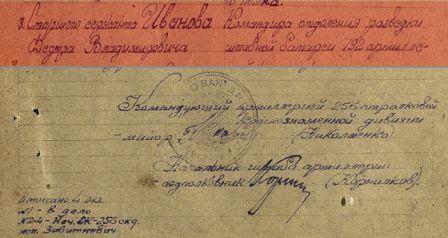 3. Старшего сержанта Иванова Командира отделения разведки
Федора Владимировича штабной батареи 192 артилле-
Командующий артиллерией 256 стрелковой
Краснознаменной дивизии
- майор (Николаенко)
Начальник штаба артиллерии
- подполковник (Корнилков).
Написано 4 экз.
№1 - в дело